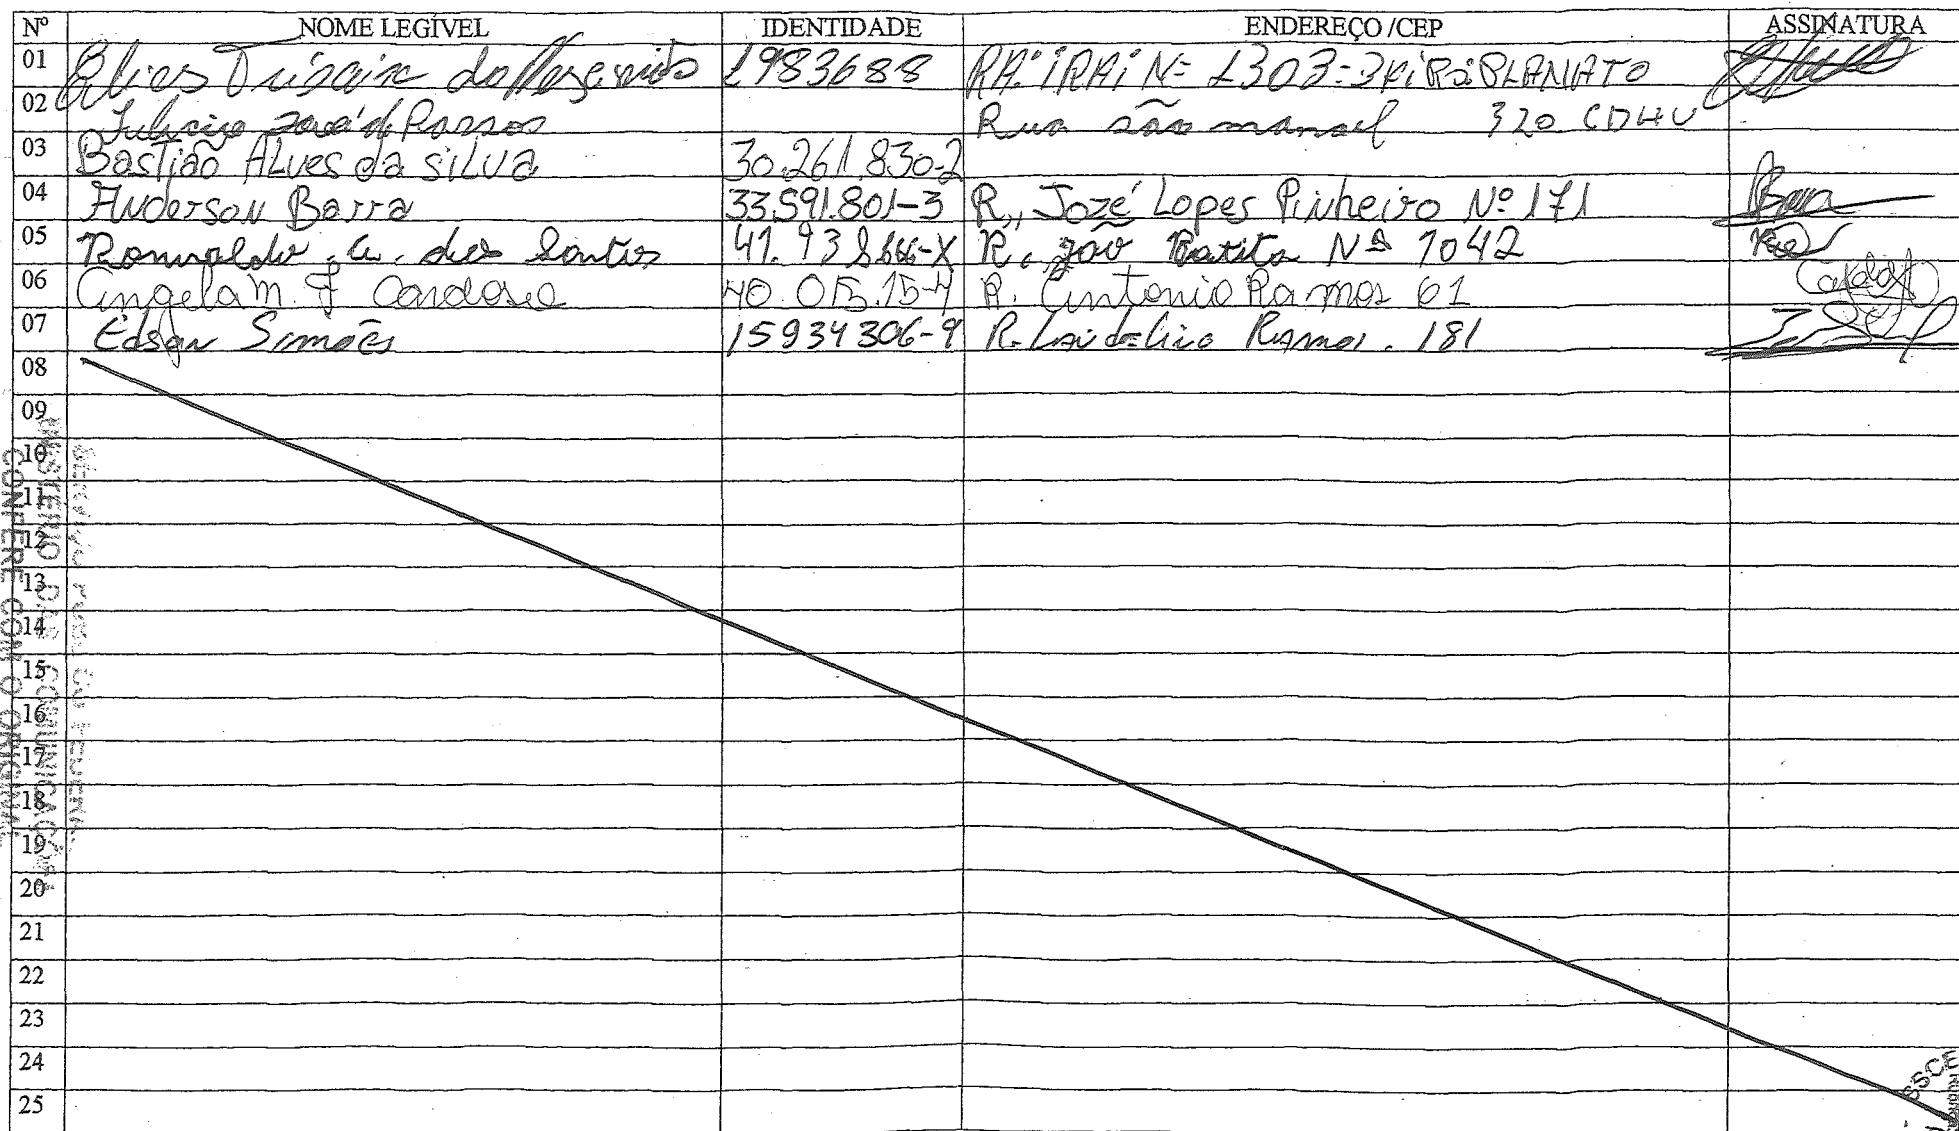 Nº NOME LEGÍVEL IDENTIDADE ENDEREÇO/CEP ASSINATURA
01 Elias 1983688 Nº 1303
02 José d Passos Rua são manoel 320 CDHU
03 Bastião ALves da SiLva 30.261.830-2
04 Anderson Barra 33.591.801-3 R,, Jozé Lopes Pinheiro Nº 171
05 Romualdo dos Santos R. Batista Nº 1042
06 Angela m. f Cardoso R. Antonio Ramos 61 Cardoso
07 Edson Simões 15934306-9 R. Laudelino Ramos. 181
08
09
10
11
12
13
14
15
16
17
18
19
20
21
22
23
24
25
CONFERE COM O ORIGINAL